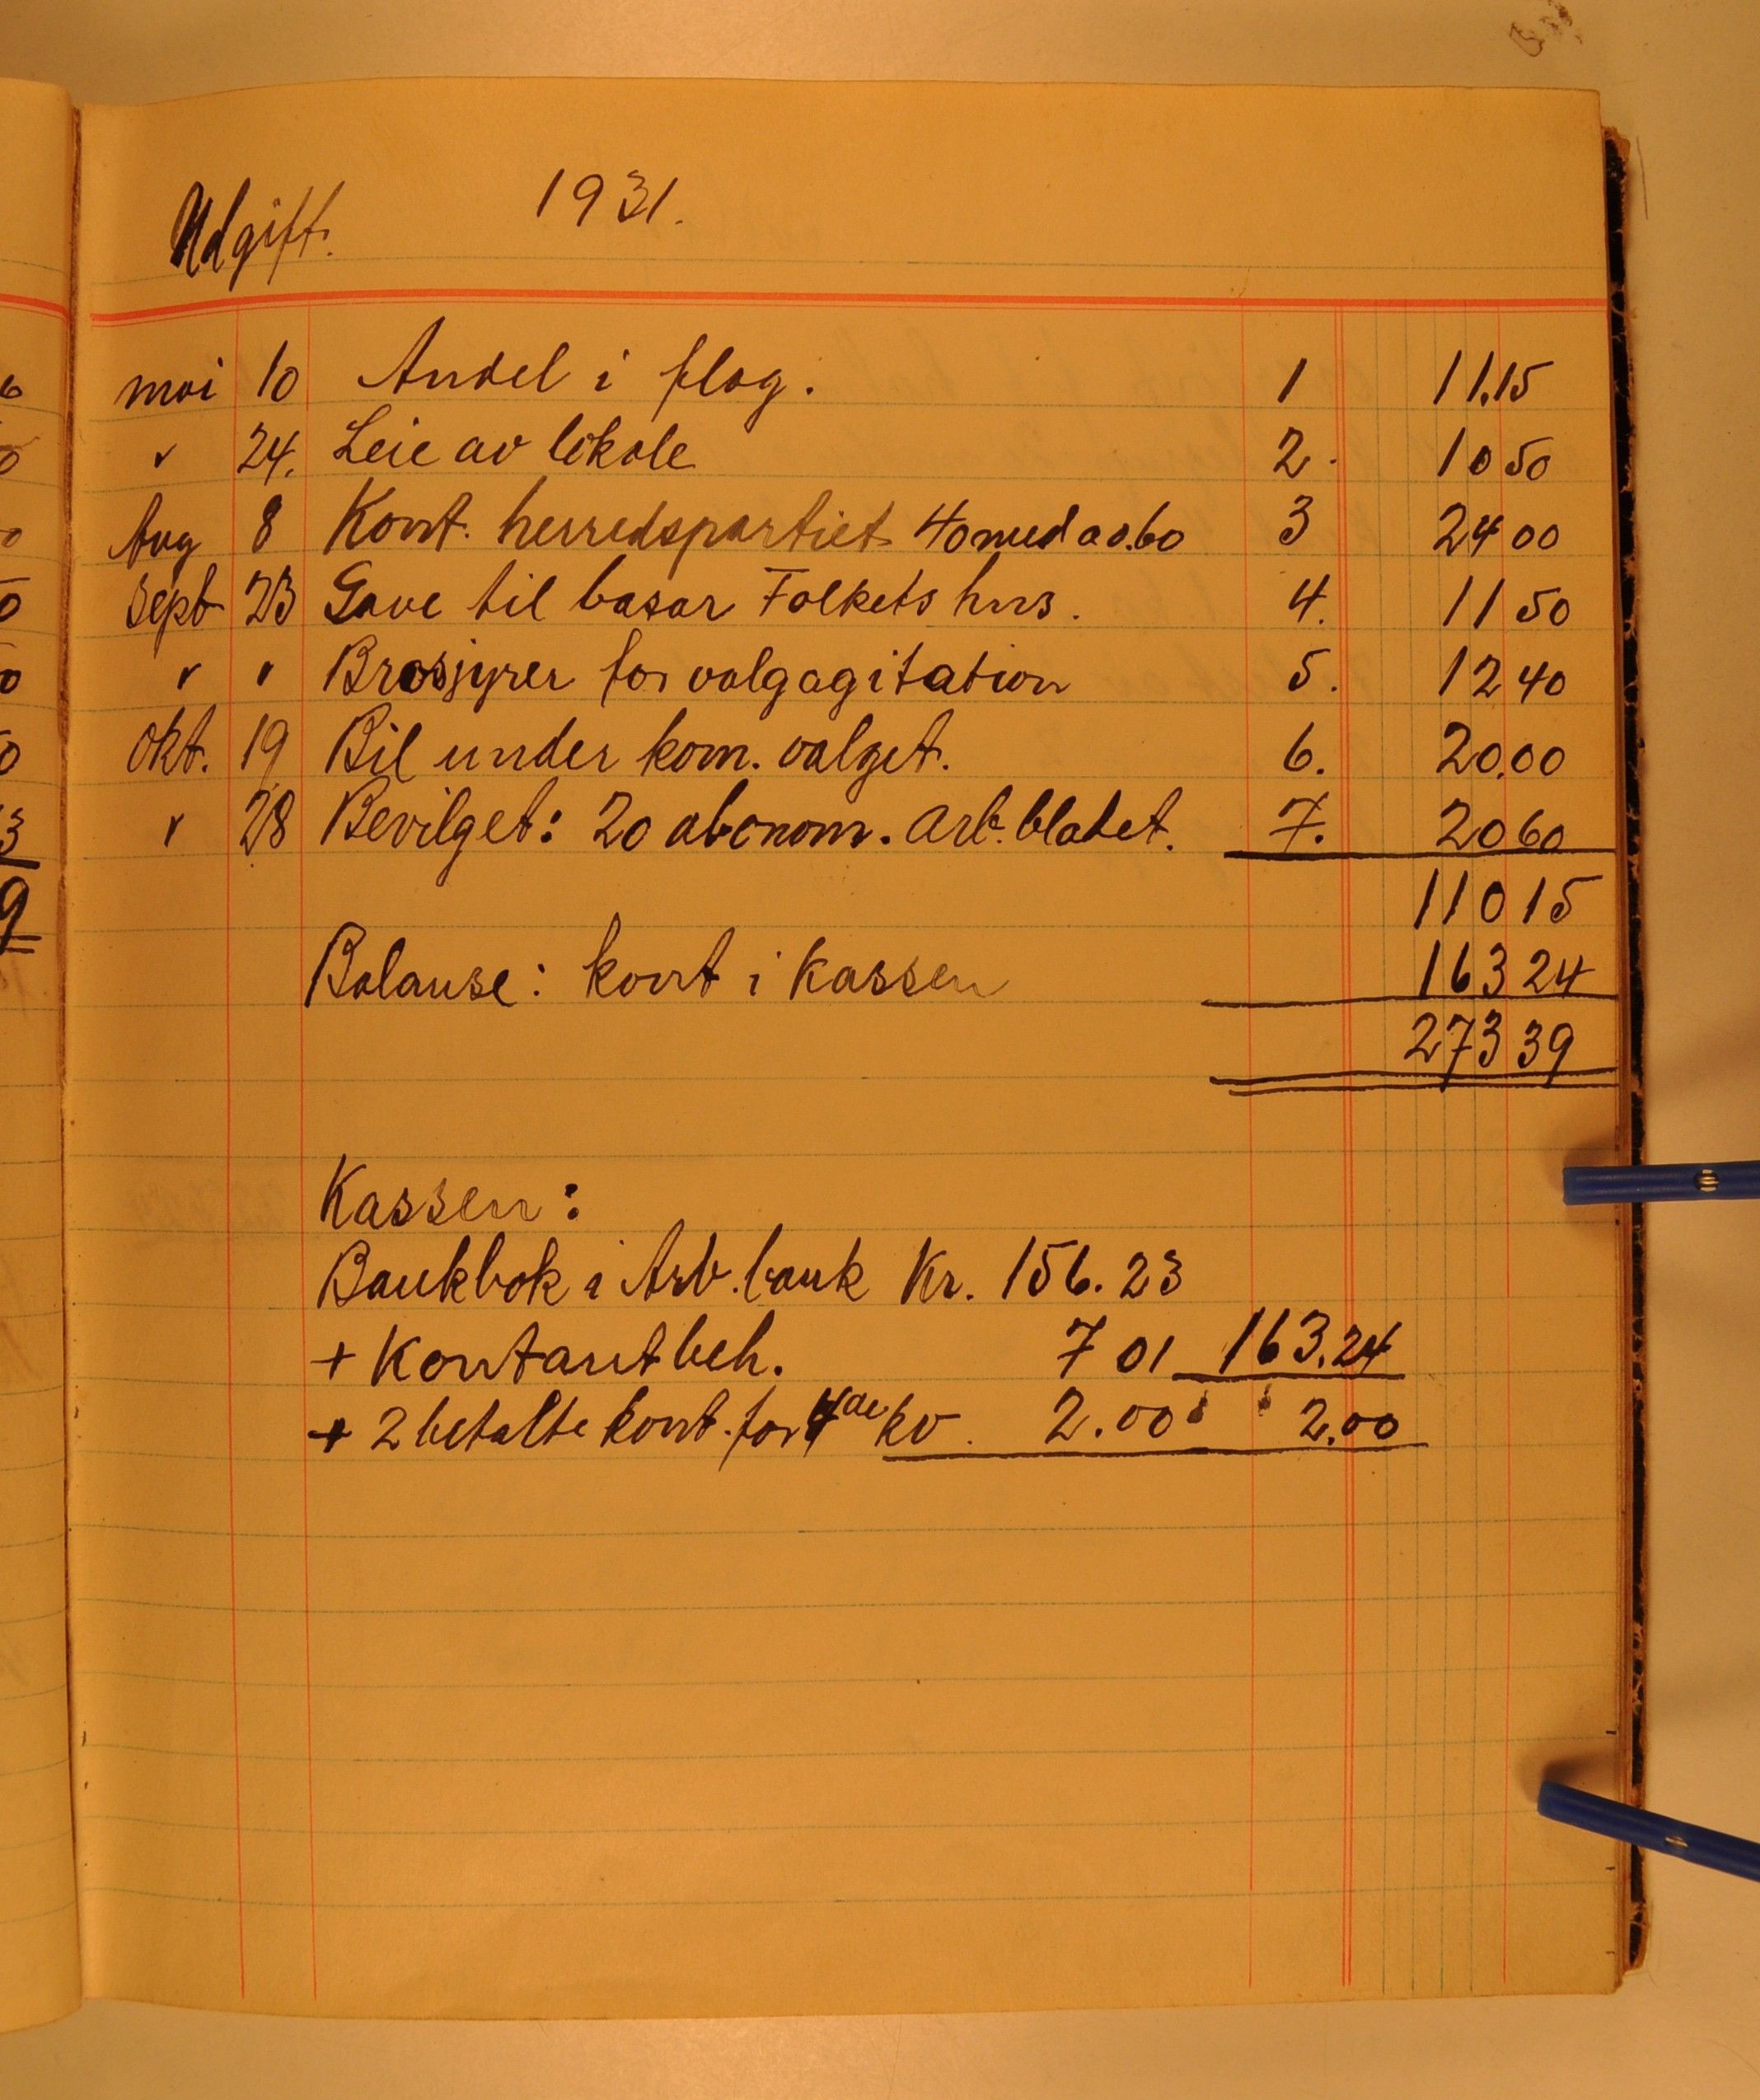 Udgift. 1931.
mai 10 Andel i flag. 1 11.15
" 24. Leie av lokale 2. 10 50
Aug 8 Kont. herredspartiet 40 med a 0.60 3 24 00
Sept 23 Gave til basar Folkets hus. 4. 11 50
" " Brosjyrer for valgagitation 5. 12 40
Okt. 19 Bil under kom. valget. 6. 20.00
" 28 Bevilget: 20 abonom. Arb. bladet. 7. 20 60
110 15
Balanse: kont i kassen 163 24
273 39
Kassen:
Bankbok i Arb. bank Kr. 156.23
+ Kontantbeh. 7 01 163.24
+ 2 betalte kont. for 4de kv. 2.00 2.00